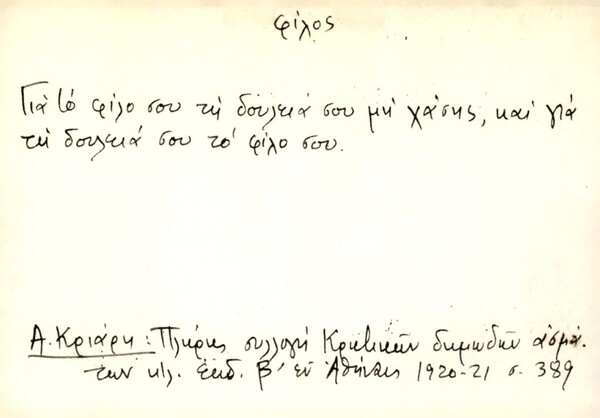 φίλος
Γιὰ τό φίλο σου τὴ δουλειά σου μὴ χάσης, καὶ γιά
τὴ δουλειά σου τό φίλο σου.
Α. Κριάρη: Πλήρης συλλογή Κρητικῶν δημωδῶν ἀσμά-
των κλ. ἐκδ. Β' ἐν Ἀθήναις 1920-21 σ. 389